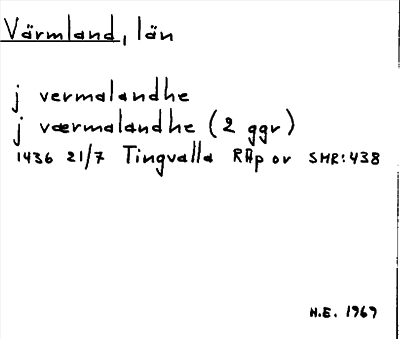 Värmland, län
j vermalandhe
j værmalandhe (2 ggr)
1436 21/7 Tingvalla RAp or SMR:438
H.E. 1969